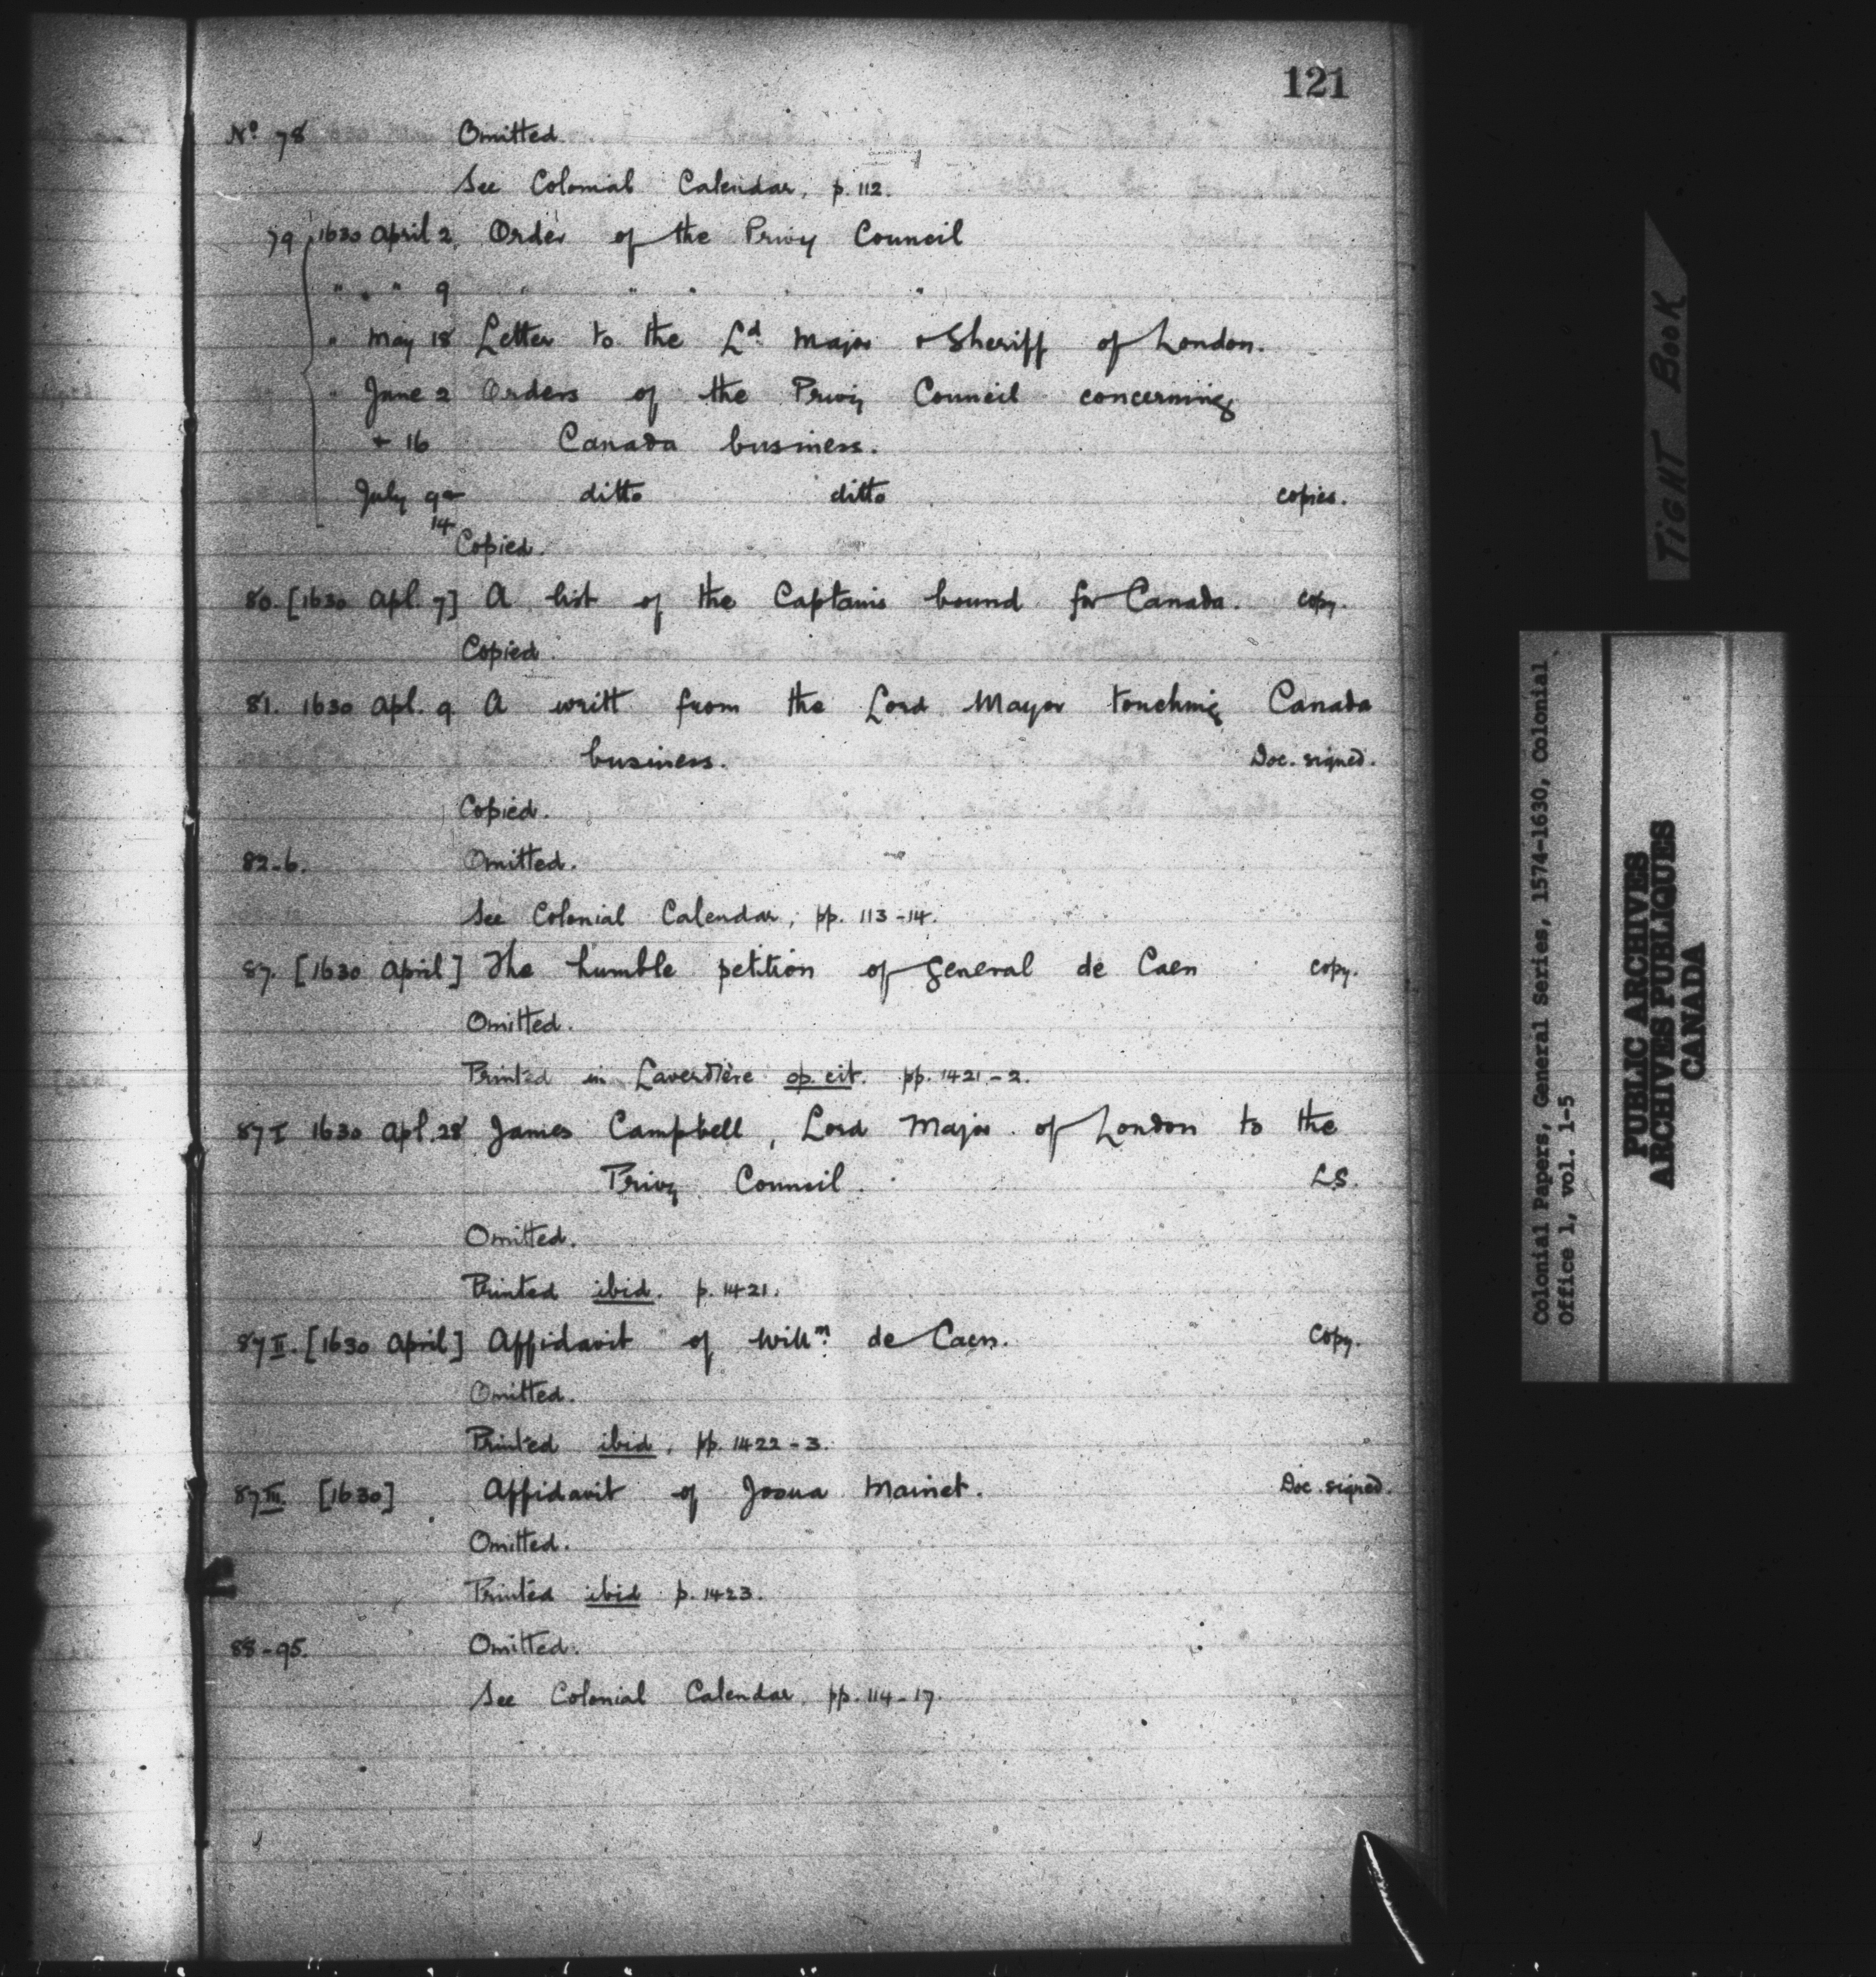 121
No. 78 Omitted.
See Colonial Calendar, p. 112.
79 1630 April 2, Order of the Privy Council
" " " 9 " " " " "
" May 18 Letter to the Ld. Major & Sheriff of London.
" June 2 Orders of the Privy Council concerning
& 16 Canada business.
July 9 & ditto ditto copies.
14
Copied.
80. [1630 Apl. 7] A list of the Captains bound for Canada. copy.
Copied.
81. 1630 Apl. 9 A writt from the Lord Mayor touching Canada
business. Doc. signed.
Copied.
82-6. Omitted.
See Colonial Calendar, pp. 113-14.
87. [1630 April] The humble petition of General de Caen copy.
Omitted.
Printed in Laverdière op. cit. pp. 1421-2.
87 I 1630 Apl. 28 James Campbell, Lord Major of London to the
Privy Council. L.S.
Omitted.
Printed ibid. p. 1421.
87 II. [1630 April] Affidavit of Willm. de Caen. Copy.
Omitted.
Printed ibid, pp. 1422-3.
87 III. [1630] Affidavit of Josua Mainet. Doc. signed.
Omitted.
Printed ibid p. 1423.
88-95. Omitted.
See Colonial Calendar, pp. 114-17.
TIGHT BOOK
Colonial Papers, General Series, 1574-1630, Colonial
Office 1, vol. 1-5
PUBLIC ARCHIVES
ARCHIVES PUBLIQUES
CANADA